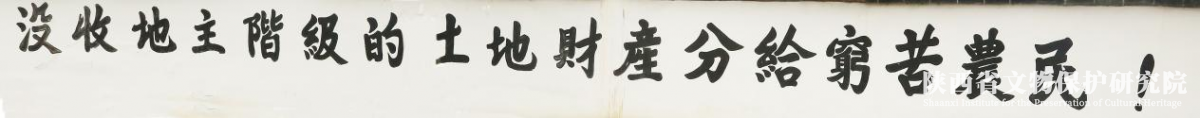 没收地主階級的土地財産分給窮苦農民！
陕西省文物保护研究院
Shaanxi Institute for the Preservation of Cultural Heritage